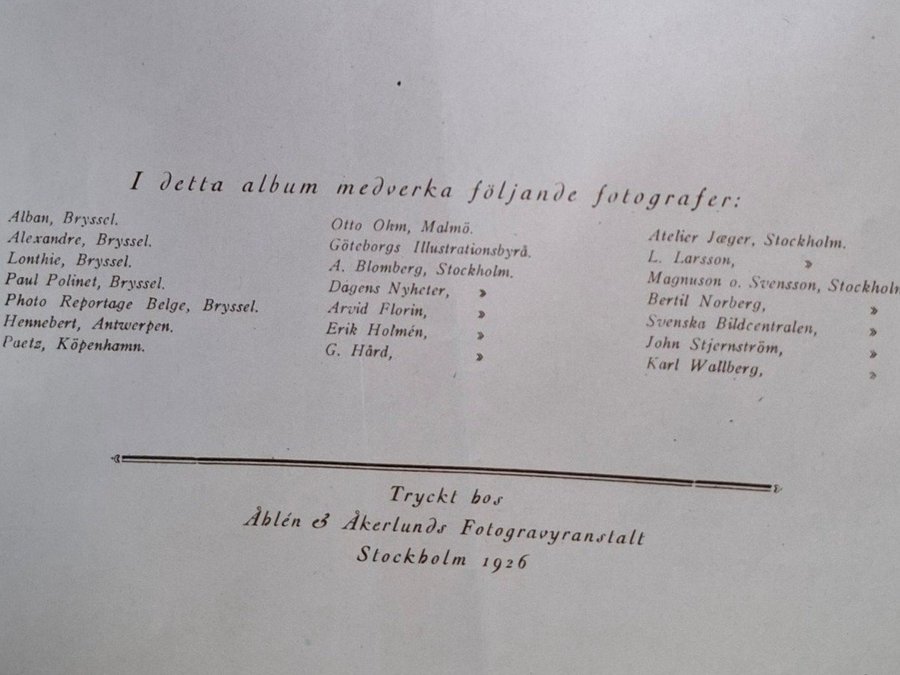 I detta album medverka följande fotografer:
Alban, Bryssel.
Alexandre, Bryssel.
Lonthie, Bryssel.
Paul Polinet, Bryssel.
Photo Reportage Belge, Bryssel.
Hennebert, Antwerpen.
Paetz, Köpenhamn.
Otto Ohm, Malmö.
Göteborgs Illustrationsbyrå.
A. Blomberg, Stockholm.
Dagens Nyheter, »
Arvid Florin, »
Erik Holmén, »
G. Hård, »
Atelier Jæger, Stockholm.
L. Larsson, »
Magnuson o. Svensson, Stockholm
Bertil Norberg, »
Svenska Bildcentralen, »
John Stjernström, »
Karl Wallberg, »
Tryckt hos
Åhlén & Åkerlunds Fotogravyranstalt
Stockholm 1926